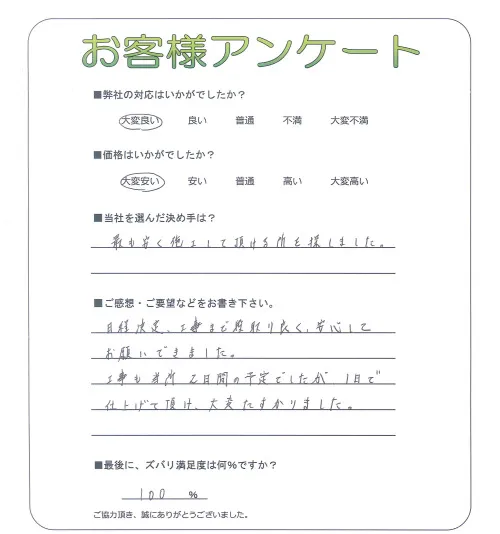 お客様アンケート
■弊社の対応はいかがでしたか？
大変良い 良い 普通 不満 大変不満
■価格はいかがでしたか？
大変安い 安い 普通 高い 大変高い
■当社を選んだ決め手は？
最も安く施工して頂ける所を探しました。
■ご感想・ご要望などをお書き下さい。
日程決定、工事まで段取り良く、安心して
お願いできました。
工事も当所 2日間の予定でしたが 1日で
仕上げて頂け、大変たすかりました。
■最後に、ズバリ満足度は何%ですか？
100 %
ご協力頂き、誠にありがとうございました。